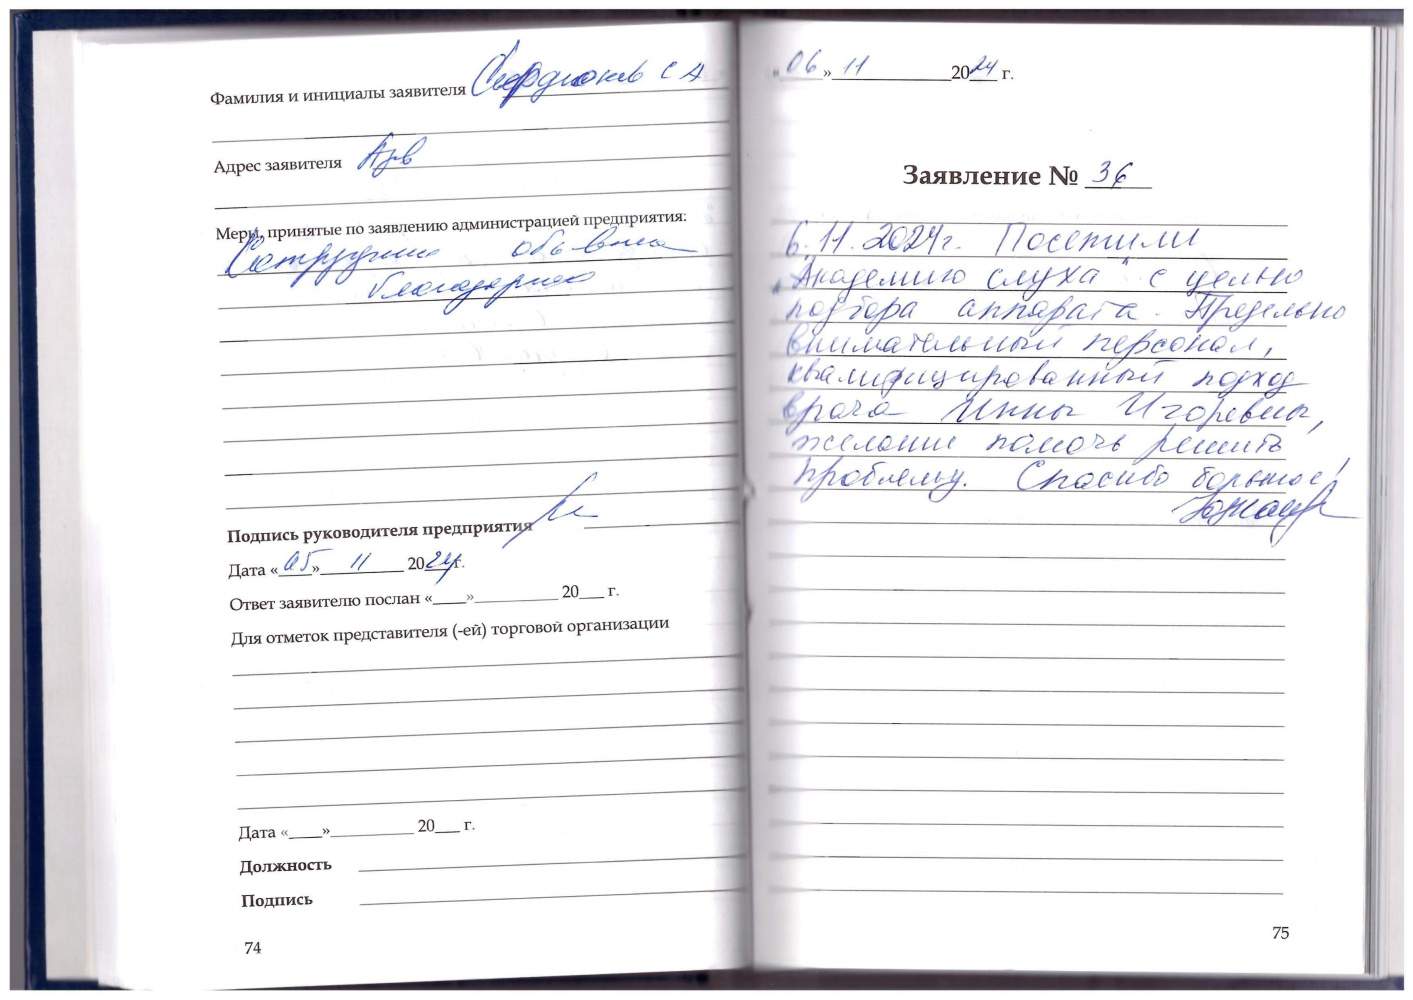 Фамилия и инициалы заявителя Сердюков С А
Адрес заявителя Азв
Меры, принятые по заявлению администрацией предприятия:
Сотруднику объявлена
благодарность
Подпись руководителя предприятия
Дата «05» 11 2024г.
Ответ заявителю послан «____»__________ 20___ г.
Для отметок представителя (-ей) торговой организации
Дата «____»__________ 20___ г.
Должность
Подпись
74
«06» 11 2024 г.
Заявление № 36
6.11.2024г. Посетили
"Академию слуха" с целью
подбора аппарата. Предельно
внимательный персонал,
квалифицированный подход
врача Инны Игоревны,
желание помочь решить
проблему. Спасибо большое!
75